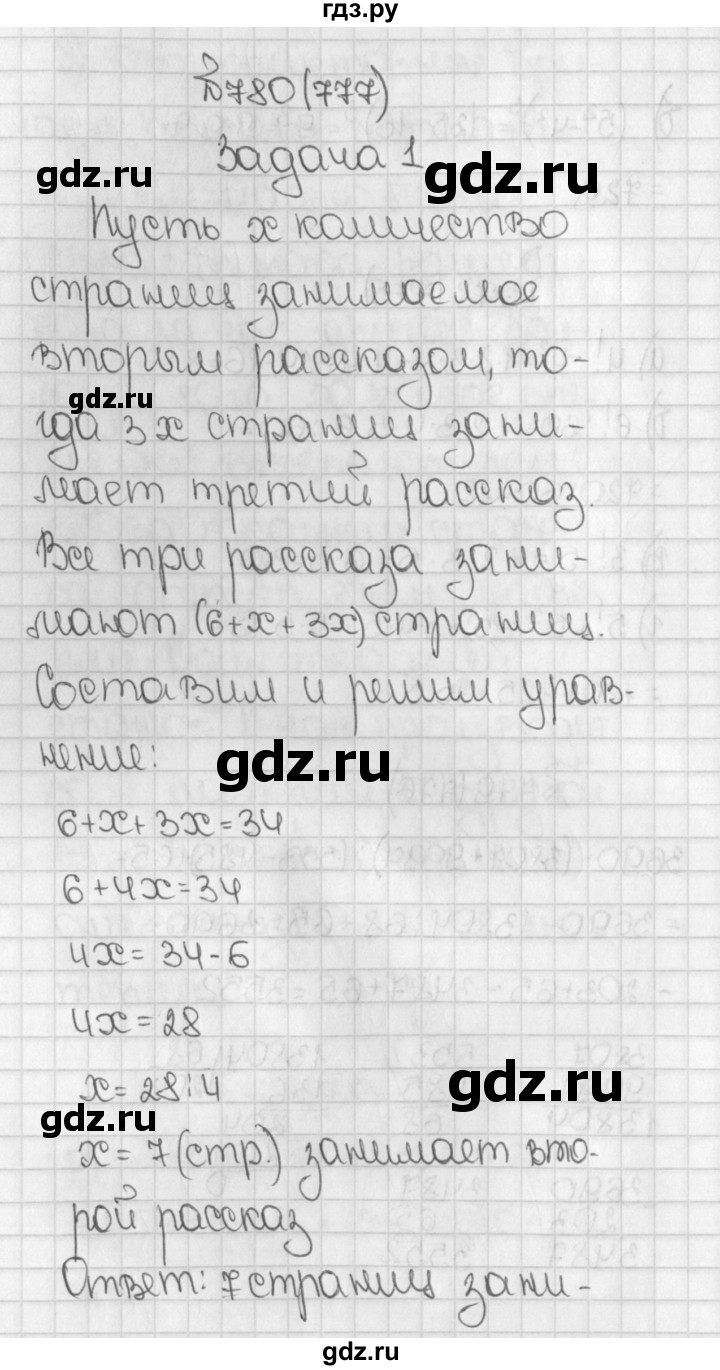 гдз.ру
№780(777)
Задача 1
gdz.ru
gdz.ru
Пусть x количество
страниц занимаемое
вторым рассказом, то-
gdz.ru
гда 3x страниц зани-
мает третий рассказ.
Все три рассказа зани-
мают (6+x+3x) страниц.
Составим и решим урав-
нение:
gdz.ru
6+x+3x=34
6+4x=34
4x=34-6
4x=28
x=28:4
gdz.ru
gdz.ru
x=7(стр.) занимает вто-
рой рассказ
Ответ: 7 страниц зани-
gdz.ru